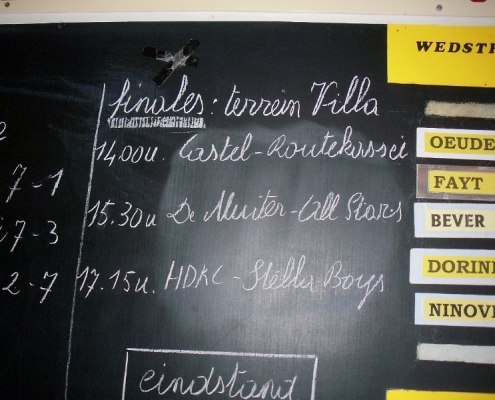 finales: terrein Villa
14.00u. Castel-Routekassei
7-1
15.30u De Muiter-All Stars
7-3
17.15u. HDKC-Stella Boys
2-7
eindstand
WEDSTR
OEUDE
FAYT
BEVER
DORINN
NINOV